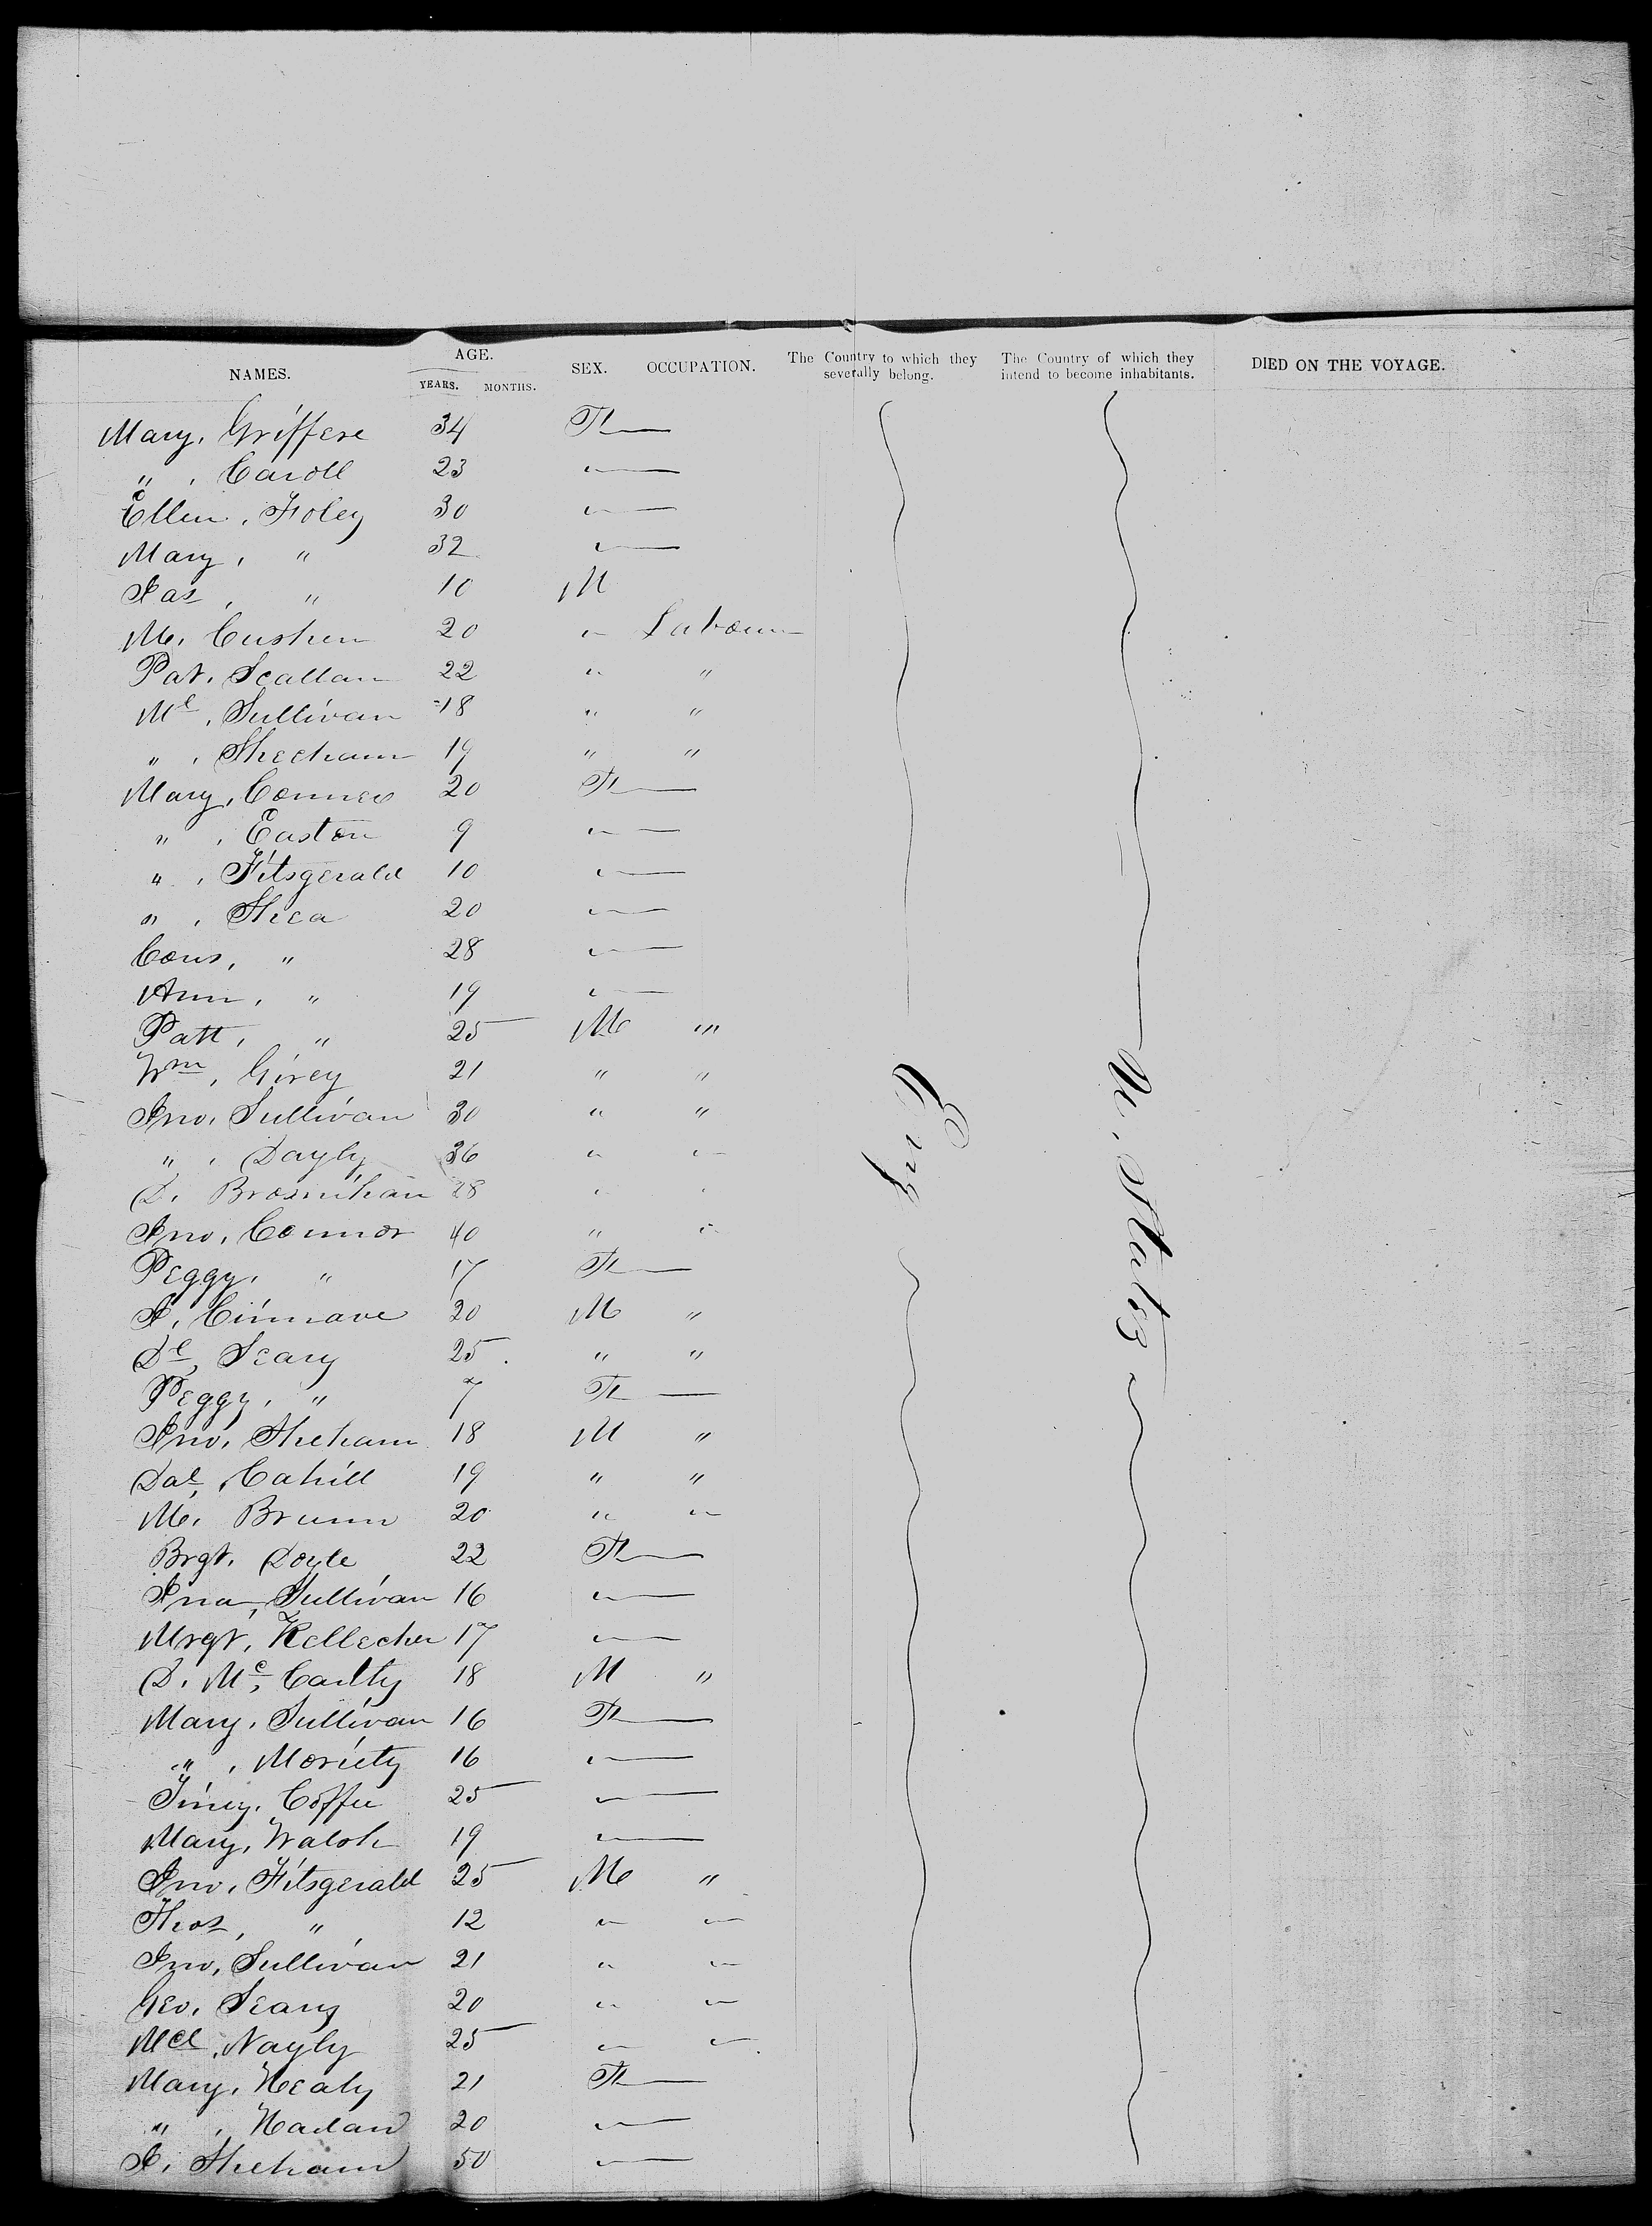 NAMES. AGE. SEX. OCCUPATION. The Country to which they severally belong. The Country of which they intend to become inhabitants. DIED ON THE VOYAGE.
YEARS. MONTHS.
Mary, Griffere 34 F
" , Caroll 23 "
Ellen, Foley 30 "
Mary, " 32 "
Jas, " 10 M
M. Cushen 20 " Labour
Pat. Scallan 22 " "
Ml, Sullivan 18 " "
" , Sheeham 19 " "
Mary, Conner 20 F
" , Easton 9 "
" , Fitsgerald 10 "
" , Shea 20 "
Cons, " 28 "
Ann, " 19 "
Patt, " 25 M "
Wm, Girey 21 " "
Jno, Sullivan 30 " "
" , Dayly 36 " "
D. Brosnihan 28 " "
Jno, Connor 40 " "
Peggy, " 17 F
J, Cinnave 20 M "
Dl, Seary 25 " "
Peggy, " 7 F
Jno, Sheham 18 M "
Dal, Cahill 19 " "
M. Brunn 20 " "
Brgt. Doyle 22 F
Jna, Sullivan 16 "
Mrgt, Kellecher 17 "
D. Mc, Carlty 18 M "
Mary, Sullivan 16 F
" , Moriety 16 "
Coffee 25 "
Mary, Walsh 19 "
Jno, Fitsgerald 25 M "
Thos, " 12 " "
Jno, Sullivan 21 " "
Geo, Seary 20 " "
Mcl, Nayly 25 " "
Mary, Healy 21 F
" , Harlan 20 "
J, Sheham 50 "
Eng
U. States